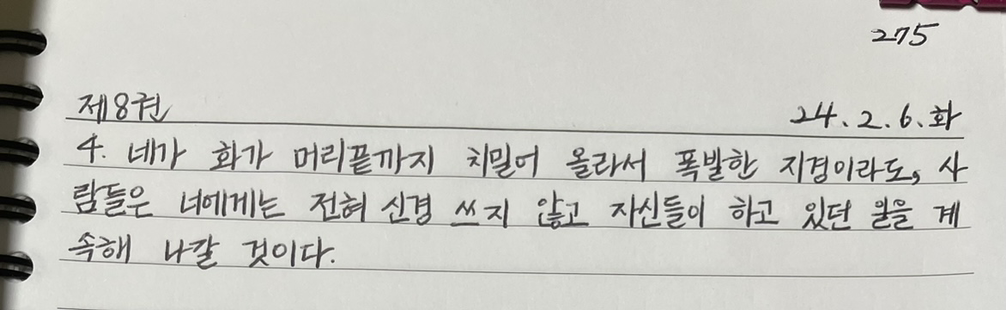 275
제8권 24.2.6.화
4. 네가 화가 머리끝까지 치밀어 올라서 폭발한 지경이라도, 사
람들은 너에게는 전혀 신경 쓰지 않고 자신들이 하고 있던 일을 계
속해 나갈 것이다.